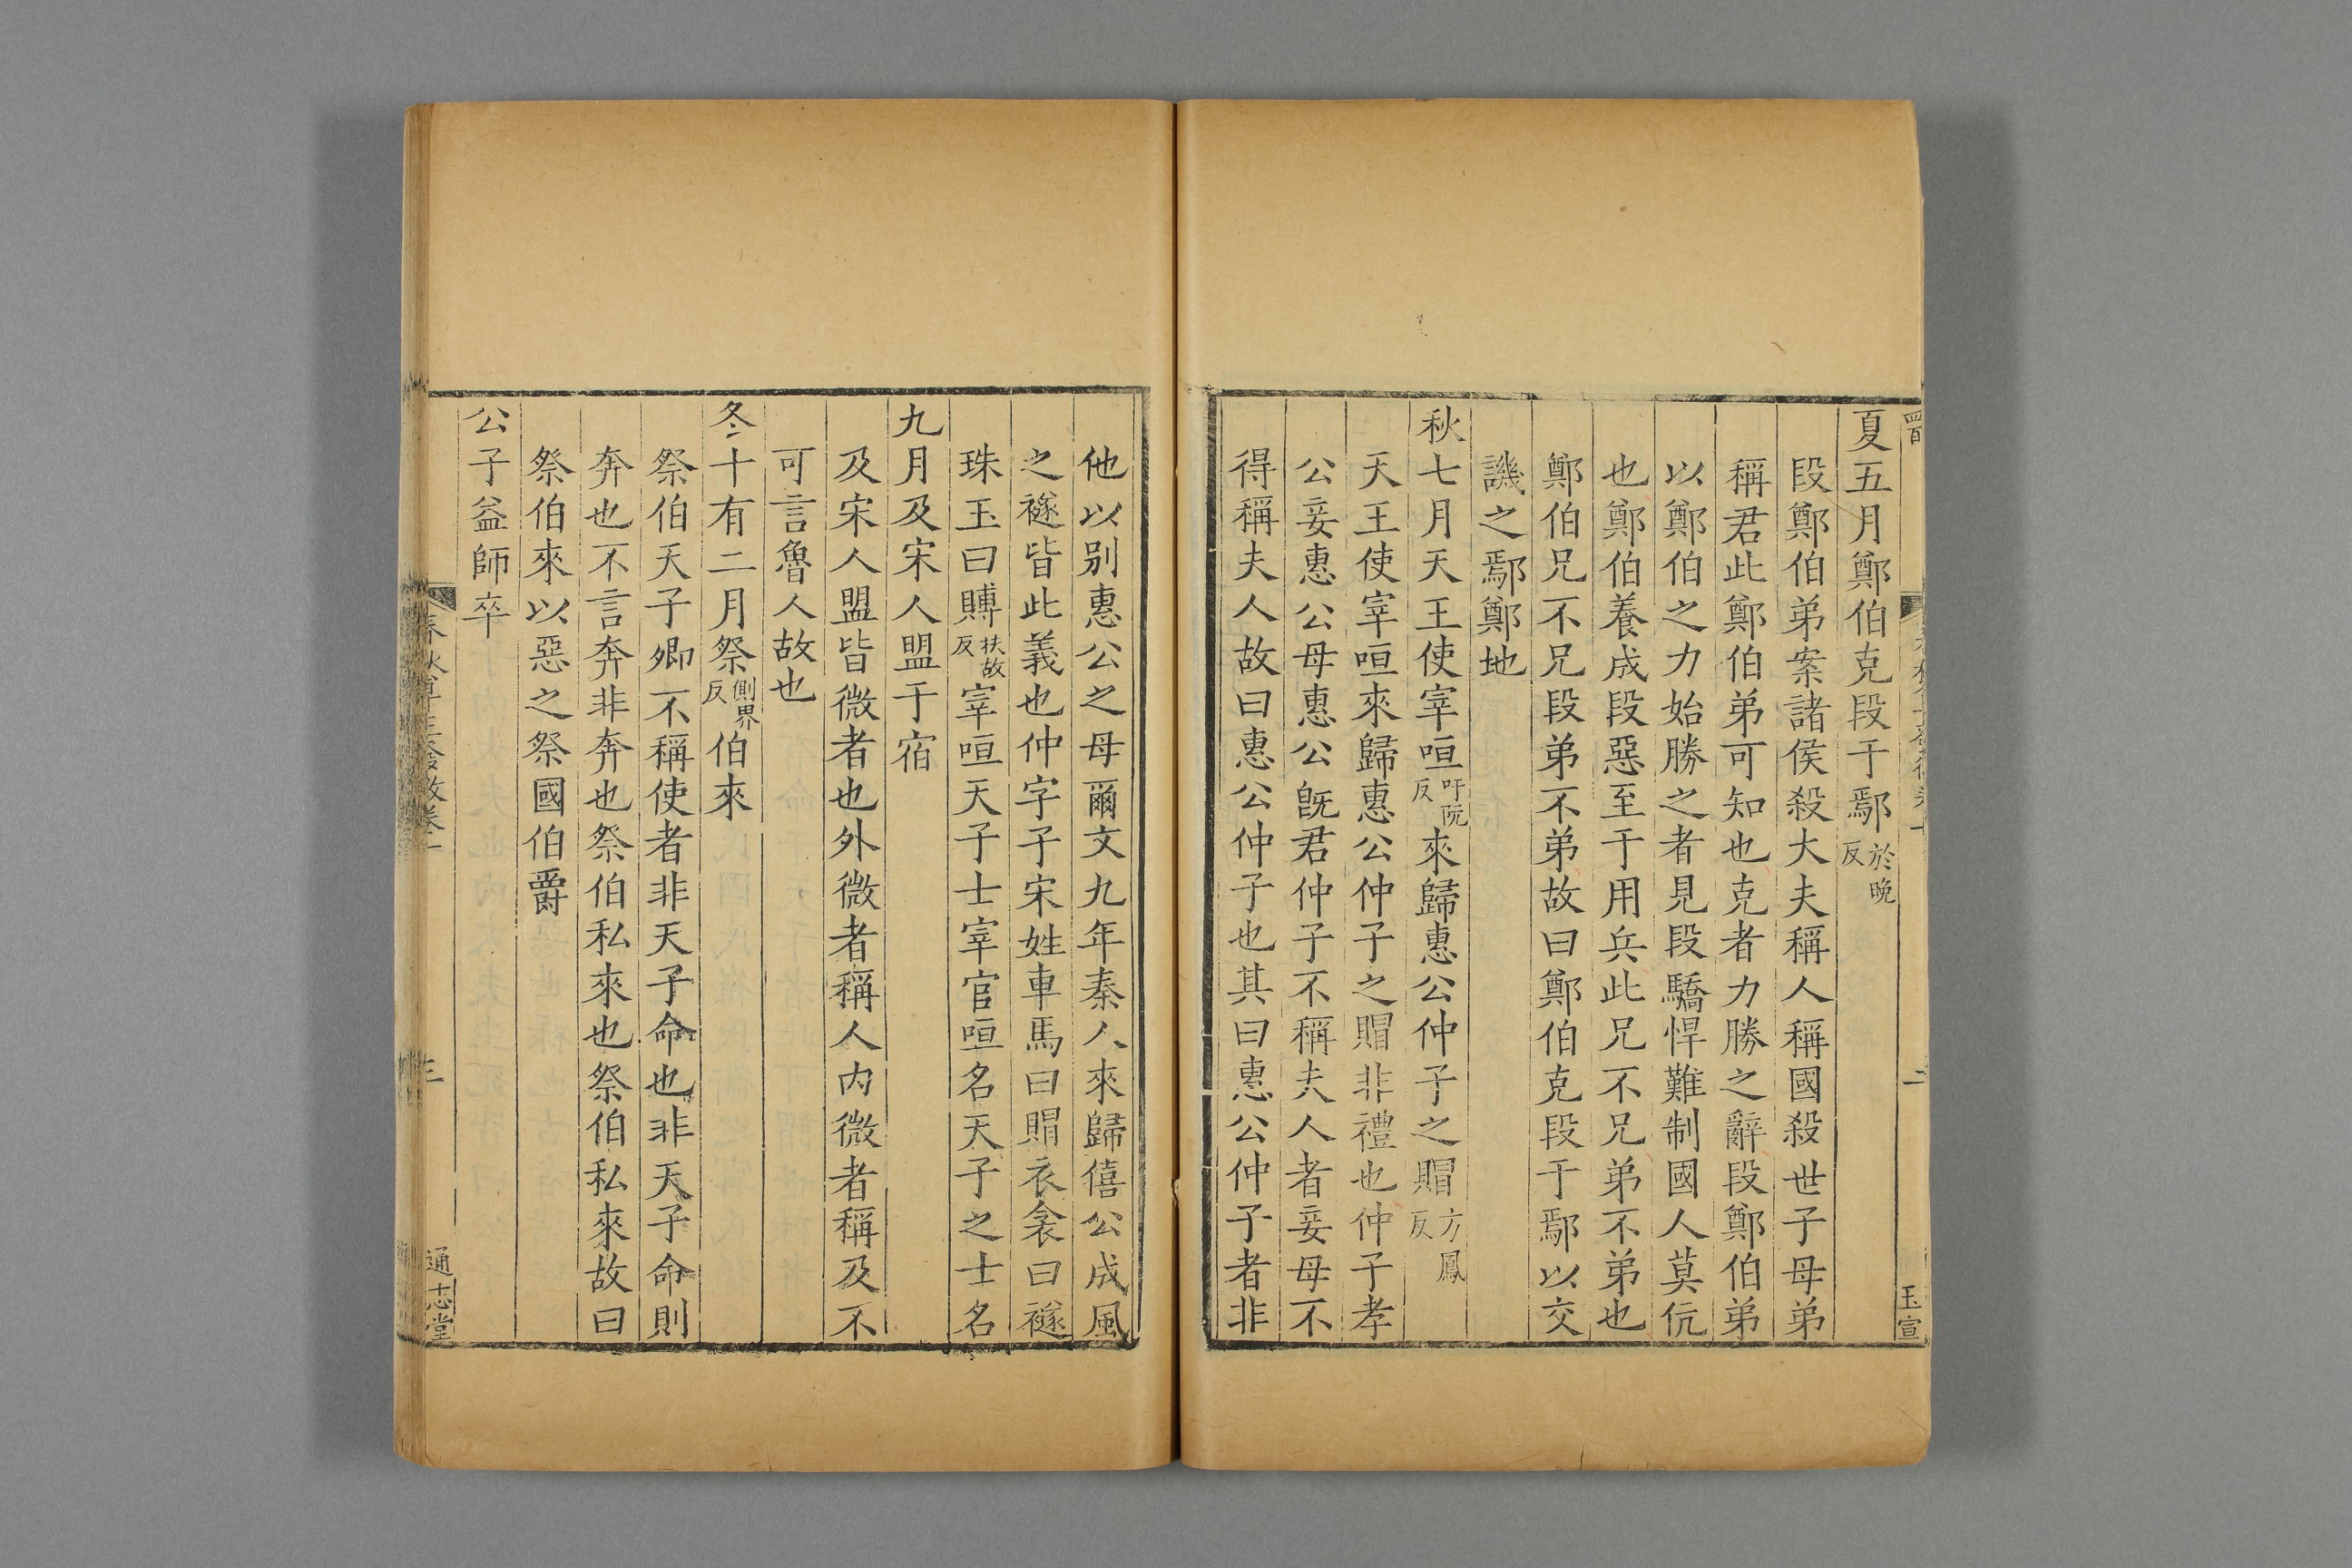 夏五月鄭伯克段于鄢於晚反
段鄭伯弟案諸侯殺大夫稱人稱國殺世子母弟
稱君此鄭伯弟可知也克者力勝之辭段鄭伯弟
以鄭伯之力始勝之者見段驕悍難制國人莫伉
也鄭伯養成段惡至于用兵此兄不兄弟不弟也
鄭伯兄不兄段弟不弟故曰鄭伯克段于鄢以交
譏之鄢鄭地
秋七月天王使宰咺吁阮反來歸惠公仲子之賵方鳳反
天王使宰咺來歸惠公仲子之賵非禮也仲子孝
公妾惠公母惠公旣君仲子不稱夫人者妾母不
得稱夫人故曰惠公仲子也其曰惠公仲子者非
二
玉宣
他以别惠公之母爾文九年秦人來歸僖公成風
之襚皆此義也仲字子宋姓車馬曰賵衣衾曰襚
珠玉曰賻扶故反宰咺天子士宰官咺名天子之士名
九月及宋人盟于宿
及宋人盟皆微者也外微者稱人内微者稱及不
可言魯人故也
冬十有二月祭側界反伯來
祭伯天子卿不稱使者非天子命也非天子命則
奔也不言奔非奔也祭伯私來也祭伯私來故曰
祭伯來以惡之祭國伯爵
公子益師卒
春秋尊王發微卷一
三
通志堂